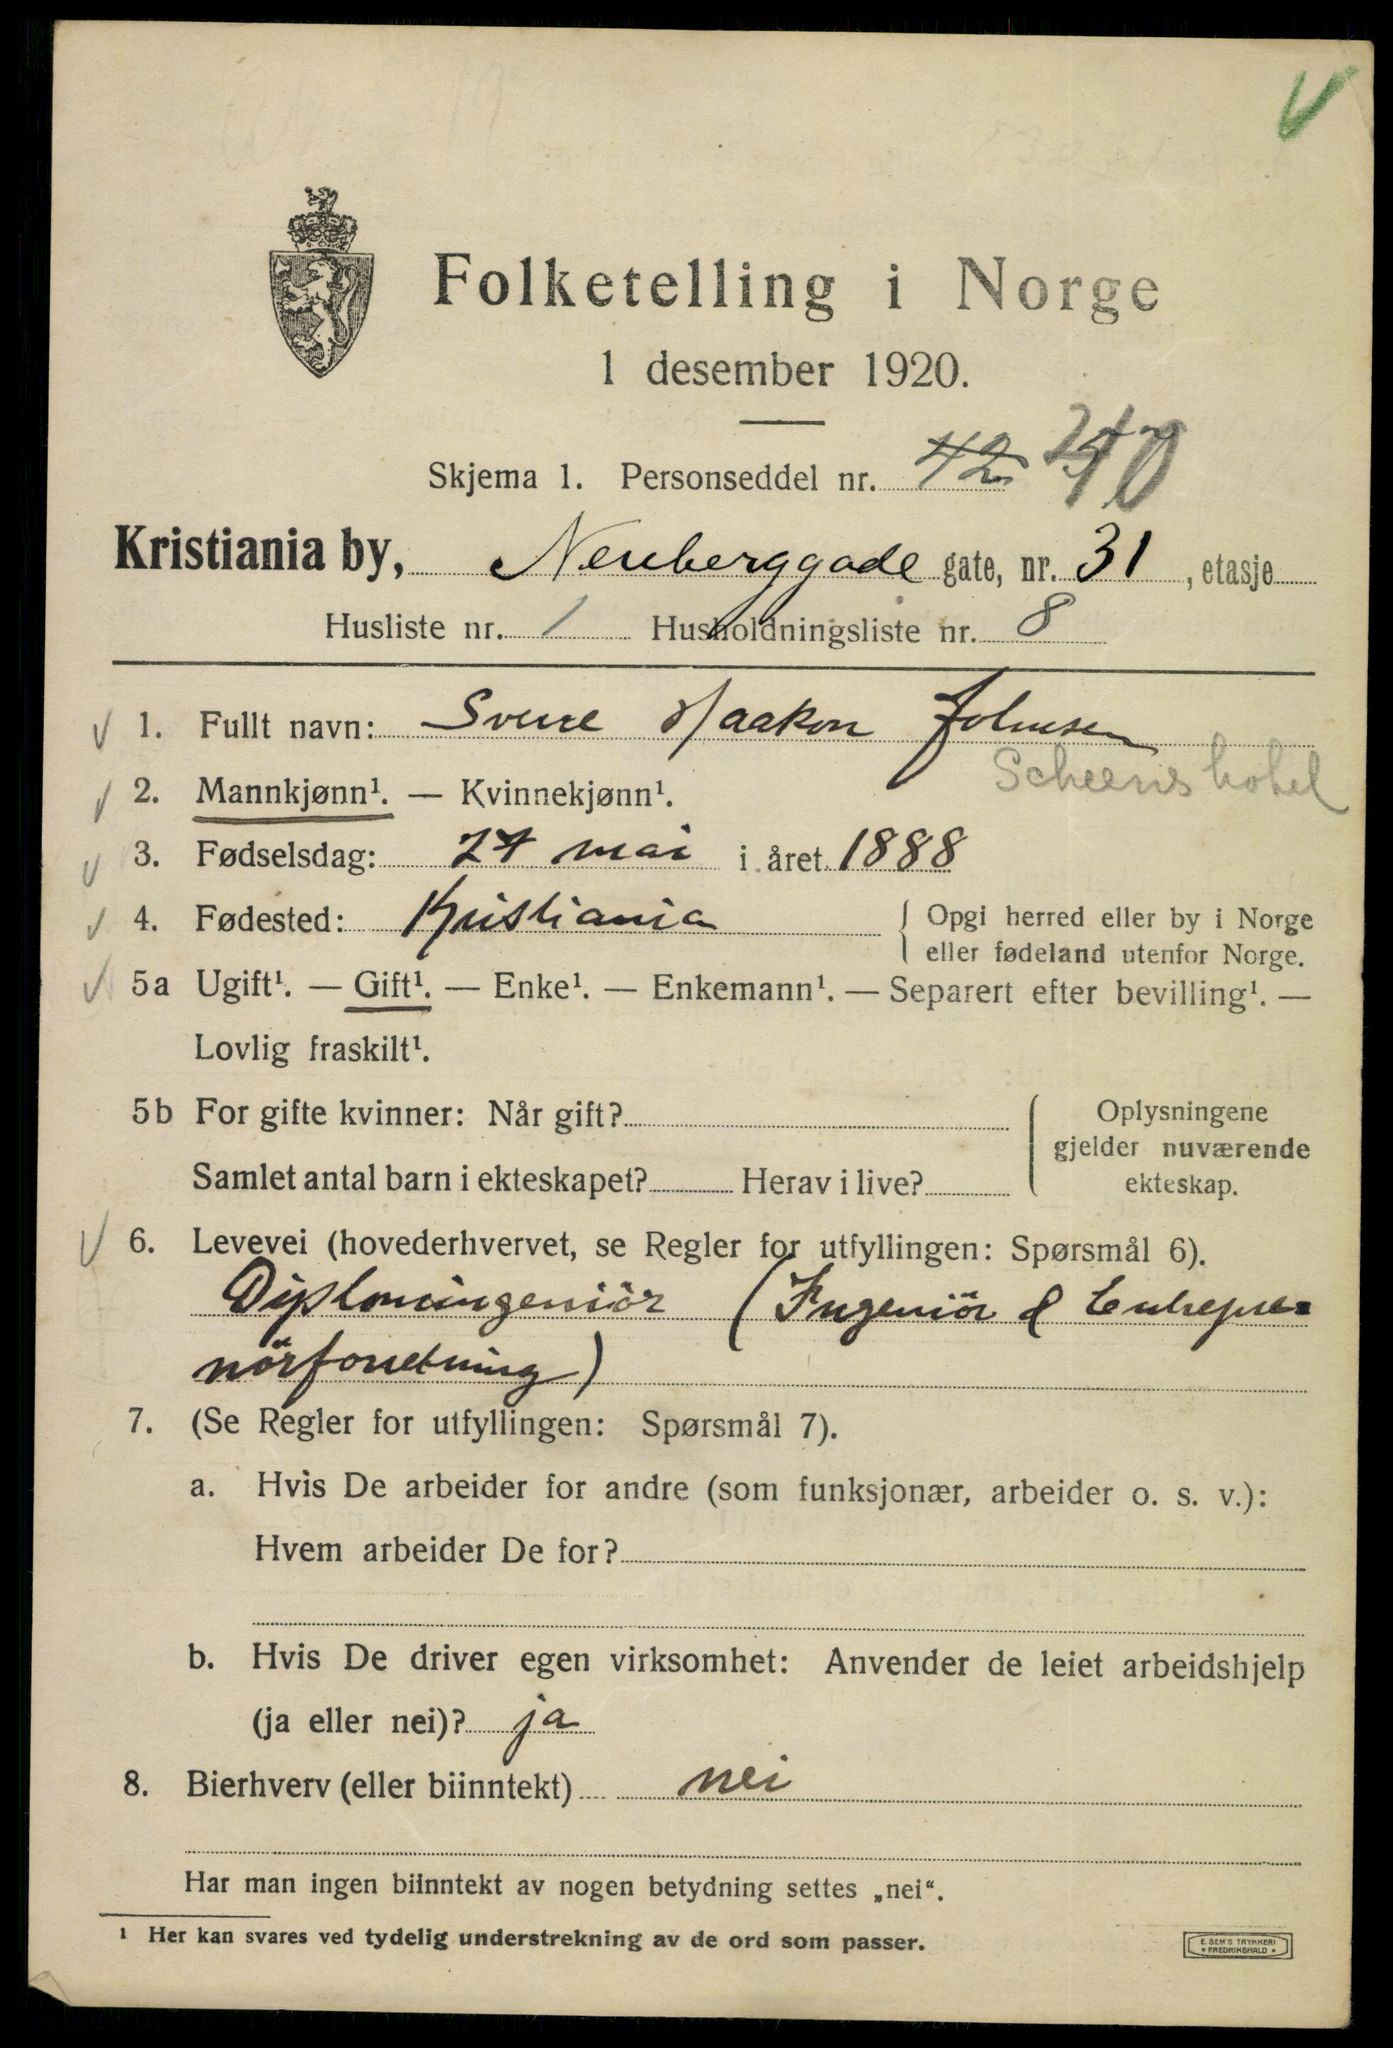 Folketelling i Norge
1 desember 1920.
Skjema 1. Personseddel nr. 42
Kristiania by, Neuberggade gate, nr. 31, etasje
Husliste nr. 1 Husholdningsliste nr. 8
1. Fullt navn: Sverre Haakon Johnsen
Scheens hotel
2. Mannkjønn¹. — Kvinnekjønn¹.
3. Fødselsdag: 27 mai i året 1888
4. Fødested: Kristiania { Opgi herred eller by i Norge
eller fødeland utenfor Norge.
5a Ugift¹. — Gift¹. — Enke¹. — Enkemann¹. — Separert efter bevilling¹. —
Lovlig fraskilt¹.
5b For gifte kvinner: Når gift? { Oplysningene
gjelder nuværende
Samlet antal barn i ekteskapet? Herav i live? ekteskap.
6. Levevei (hovederhvervet, se Regler for utfyllingen: Spørsmål 6).
Diplomingeniör (Ingeniör & Entrepre-
nörforretning)
7. (Se Regler for utfyllingen: Spørsmål 7).
a. Hvis De arbeider for andre (som funksjonær, arbeider o. s. v.):
Hvem arbeider De for?
b. Hvis De driver egen virksomhet: Anvender de leiet arbeidshjelp
(ja eller nei)? ja
8. Bierhverv (eller biinntekt) nei
Har man ingen biinntekt av nogen betydning settes „nei“.
¹ Her kan svares ved tydelig understrekning av de ord som passer.
E. SEM'S TRYKKERI
* FREDRIKSHALD *